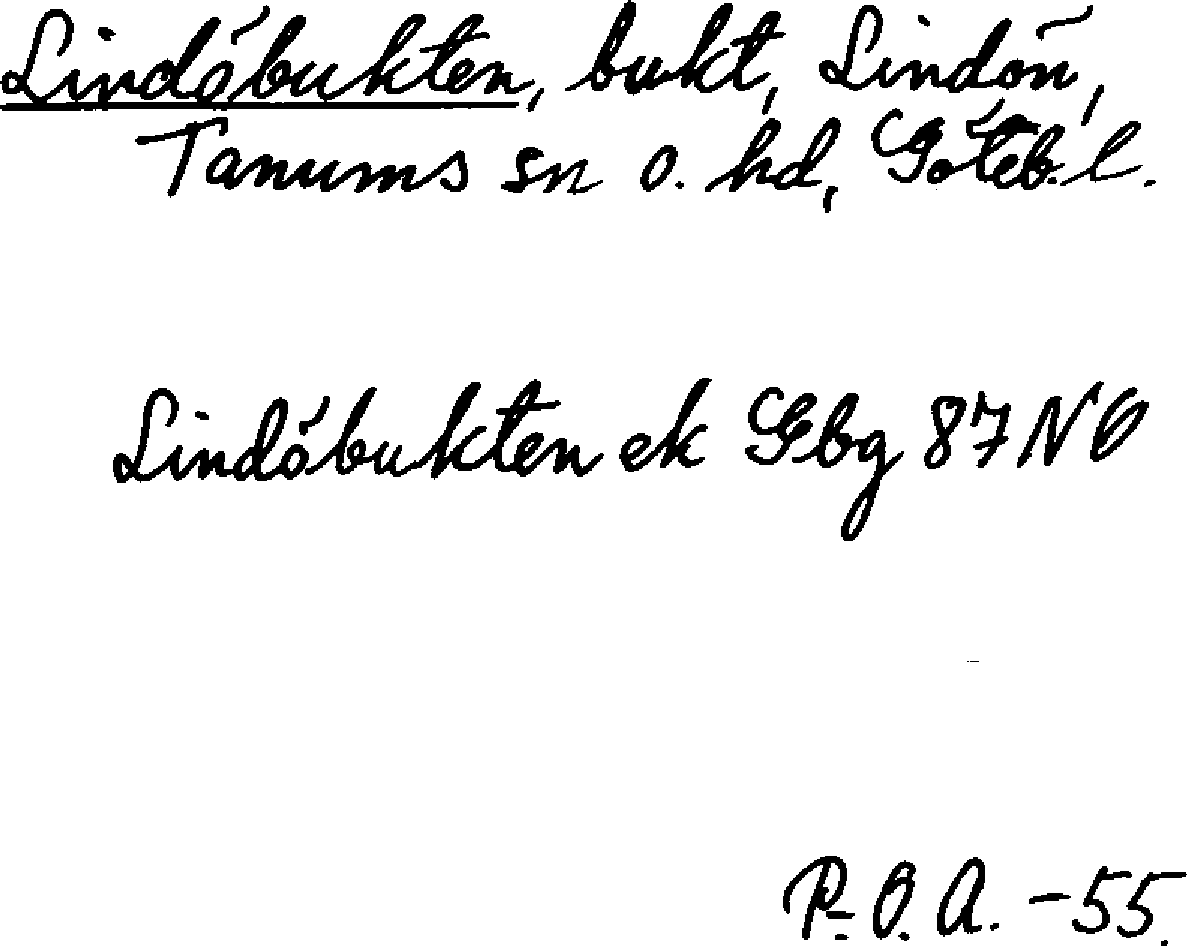 Lindöbukten, bukt, Lindön,
Tanums sn o. hd, Göteb. l.
Lindöbukten ek Gbg 87 NO
P.-O. A. -55.